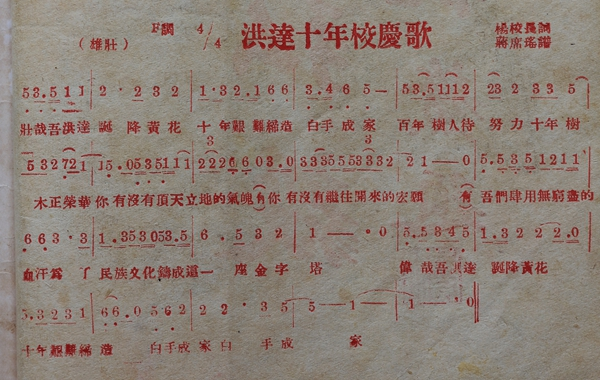 F調 4/4 洪達十年校慶歌 楊校長詞
(雄壯) 蔣席瑤譜
53.511 2·232 1·32.166 3.465- 53.51112 232335
壯哉吾洪達 誕降黃花 十年艱難締造 白手成家 百年樹人待 努力十年樹
532721 15.0535111 22266603.0 3335553332 21-0 5.5351211
木正榮華你有沒有頂天立地的氣魄(有)你有沒有繼往開來的宏願 (有)吾們肆用無窮盡的
663·3 1.353053.5 6.532 1-·0 5.5345 1.3222.0
血汗為了民族文化鑄成這一座金字塔 偉哉吾洪達 誕降黃花
5.3231 66.0562 22·35 5-1- 1-·0
十年艱難締造 白手成家白手成家